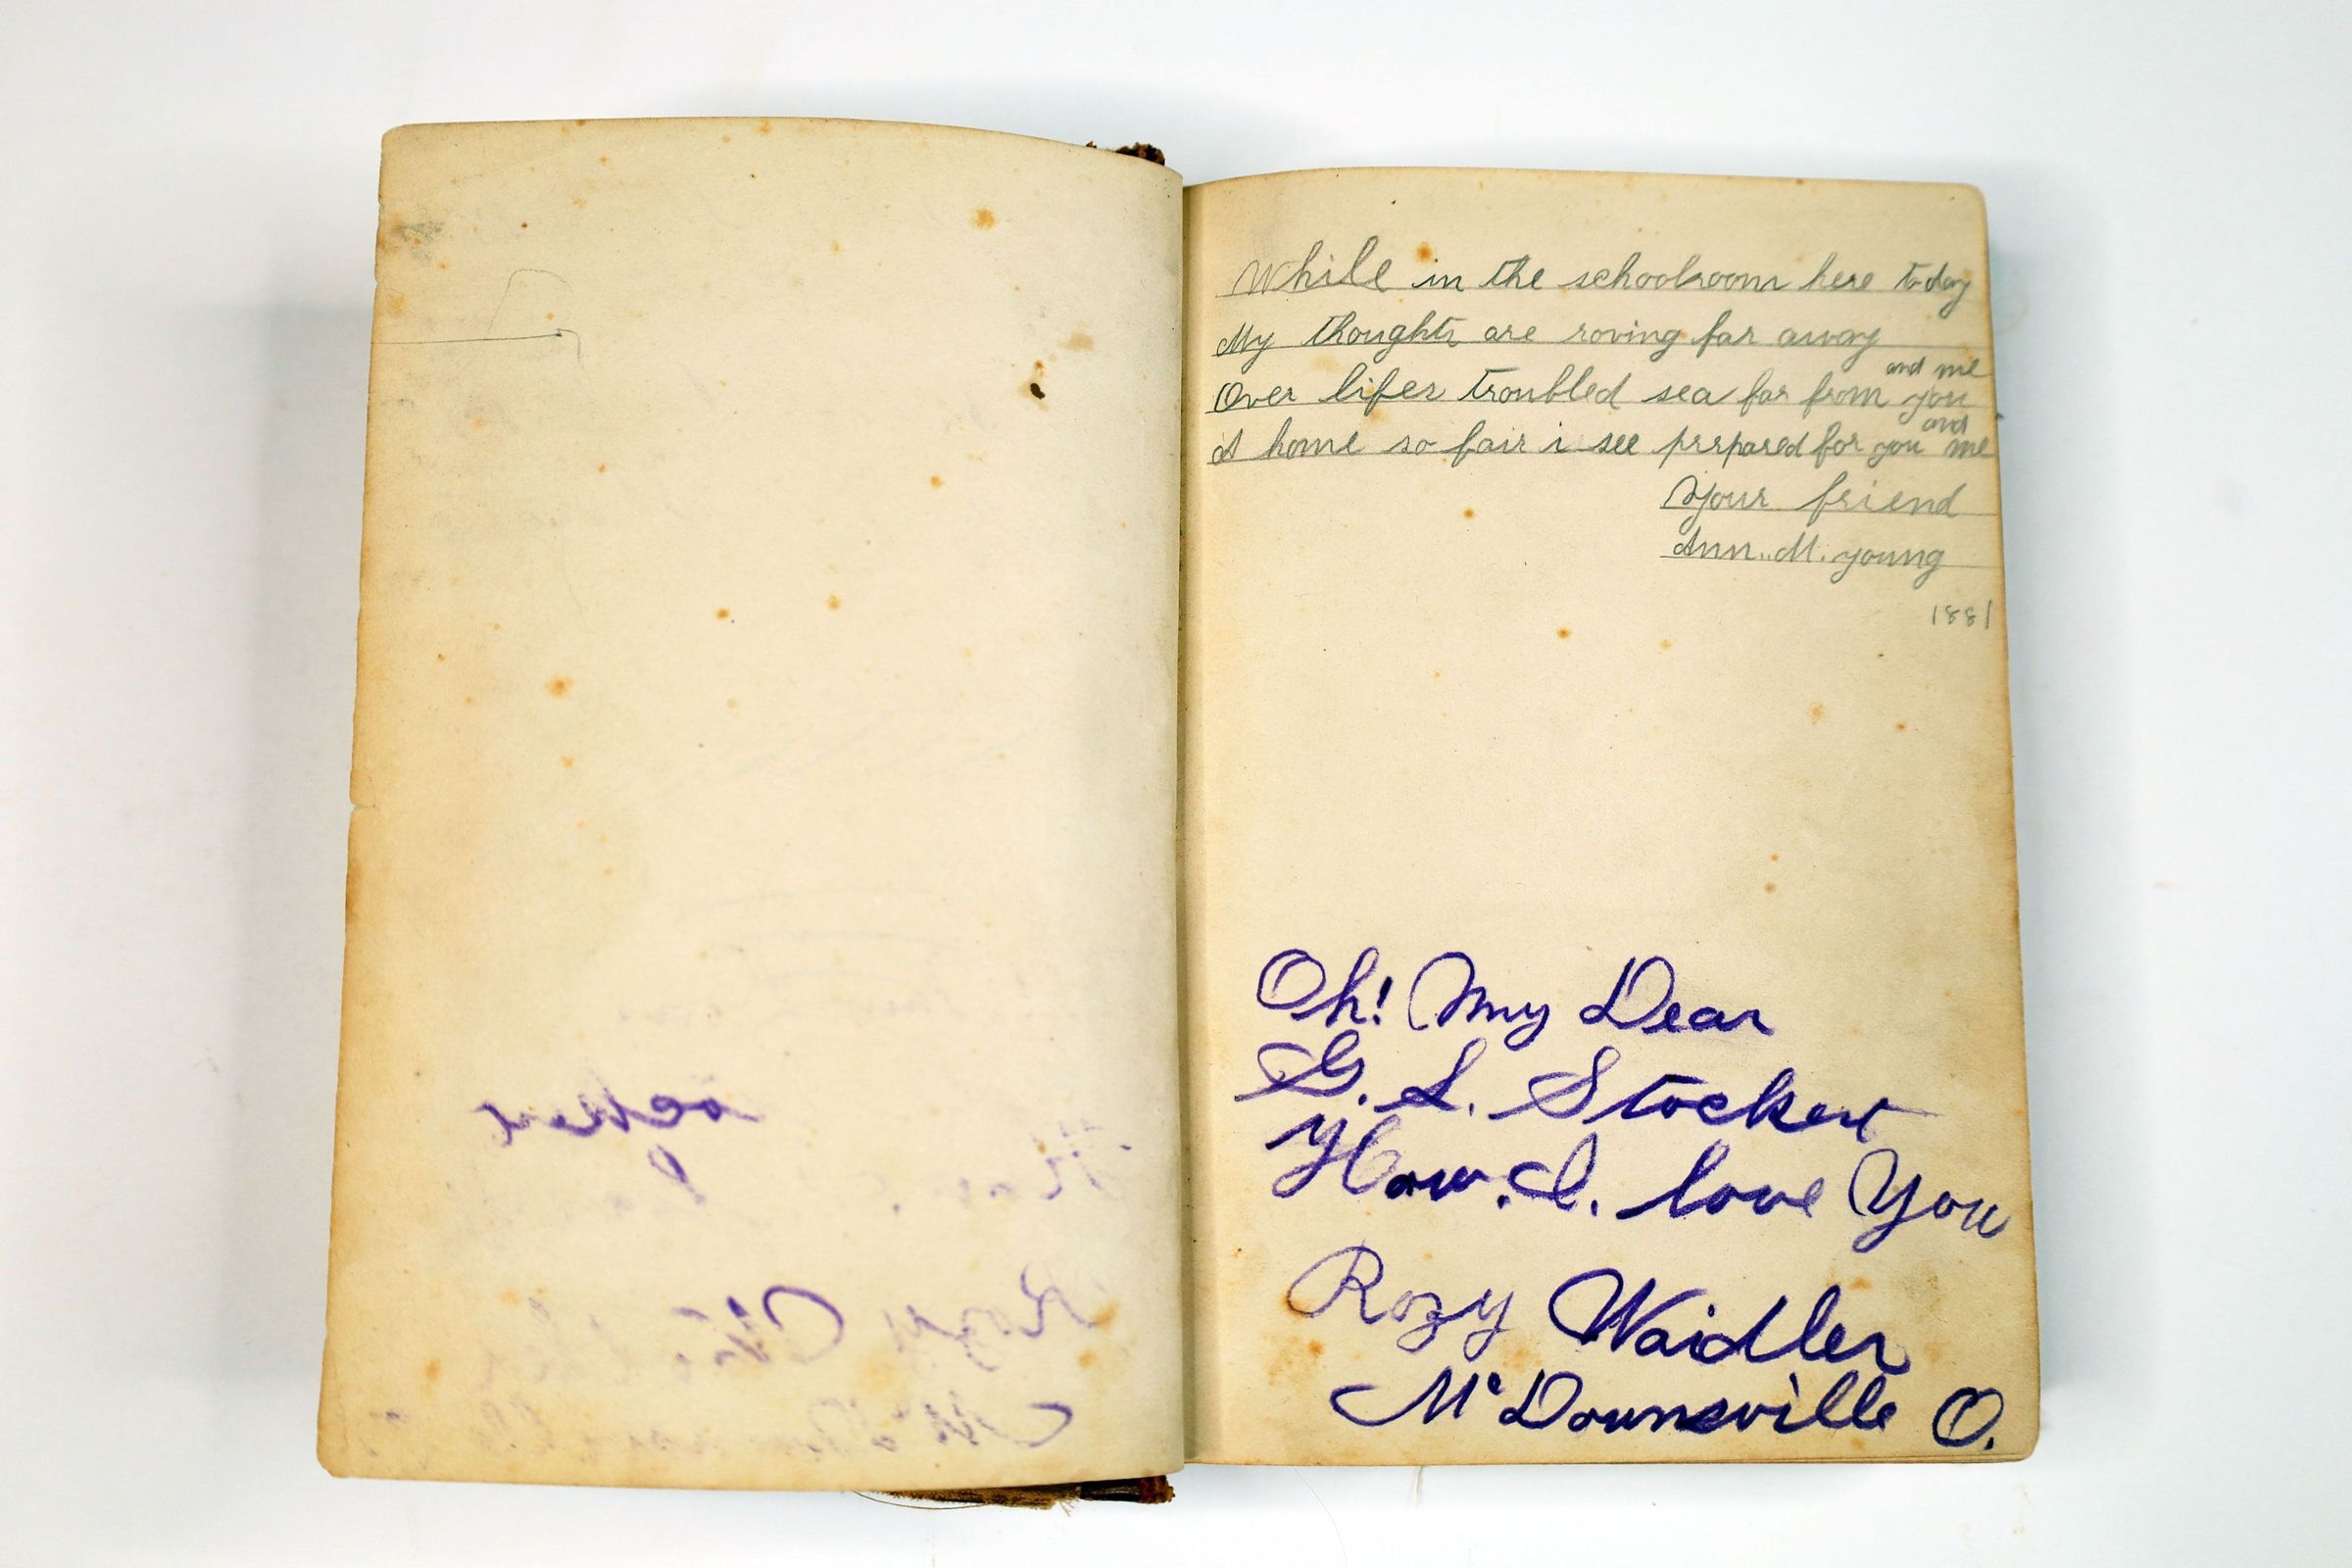 While in the schoolroom here today
My thoughts are roving far away
Over lifes troubled sea far from you and me
A home so fair i see prepared for you and me
Your friend
Ann. M. young
1881
Oh! My Dear
G. L. Stockert
How. I. love You
Rozy Waidler
McDounsville O.